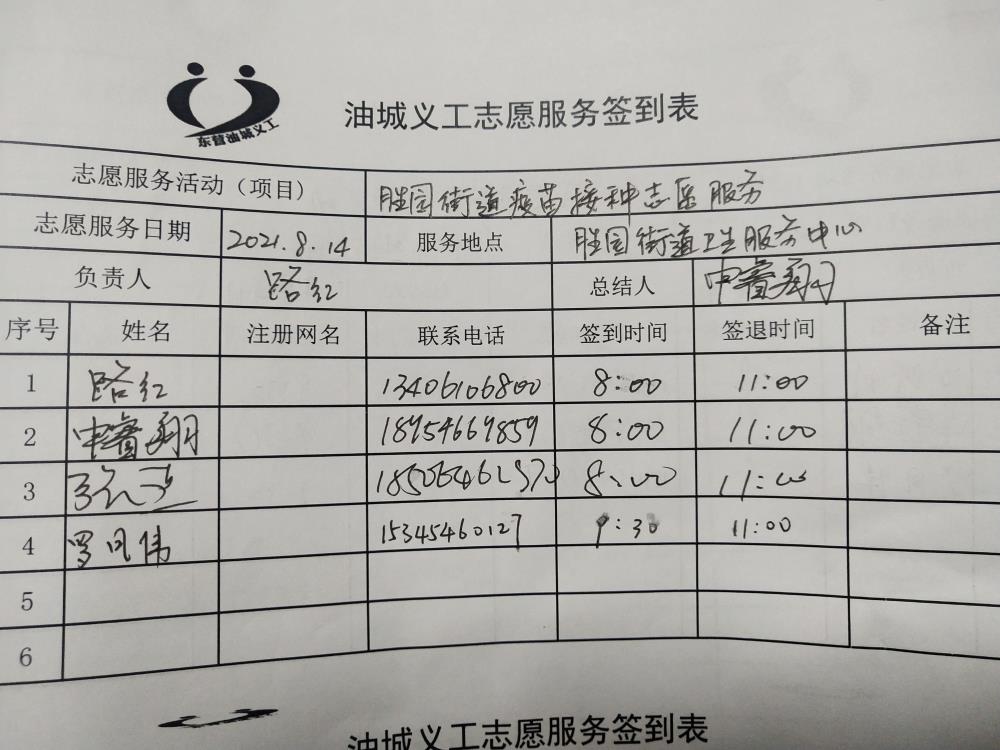 东营油城义工
油城义工志愿服务签到表
志愿服务活动（项目） 胜园街道疫苗接种志愿服务
志愿服务日期 2021.8.14 服务地点 胜园街道卫生服务中心
负责人 路红 总结人 申睿翔
序号 姓名 注册网名 联系电话 签到时间 签退时间 备注
1 路红 13406106800 8:00 11:00
2 申睿翔 18954669859 8:00 11:00
3 8:00 11:00
4 罗凤伟 15345460127 9:30 11:00
5
6
油城义工志愿服务签到表